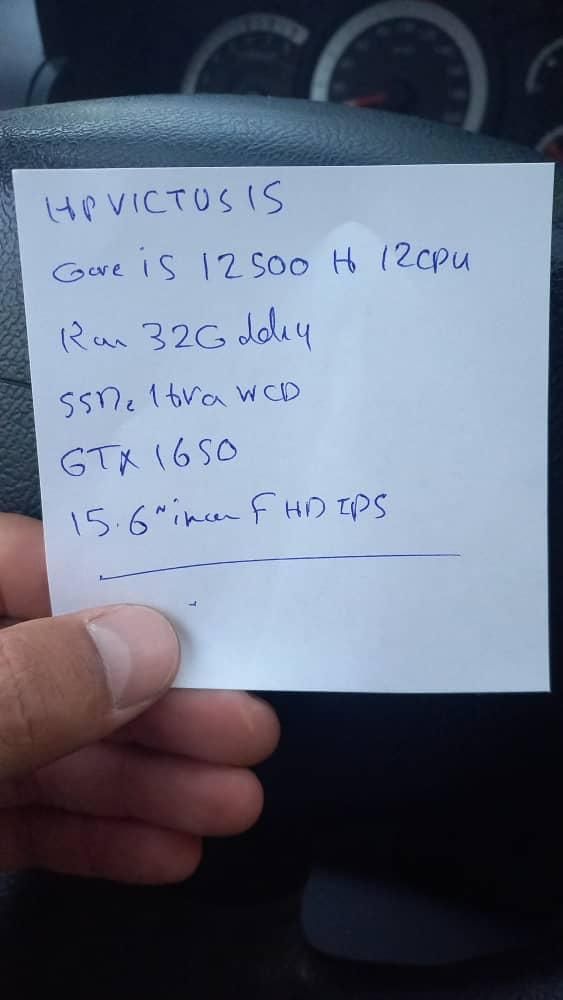 HP VICTUS 15
Core i5 12500 H 12CPU
Ram 32G ddr4
1
GTX 1650
15.6" FHD IPS